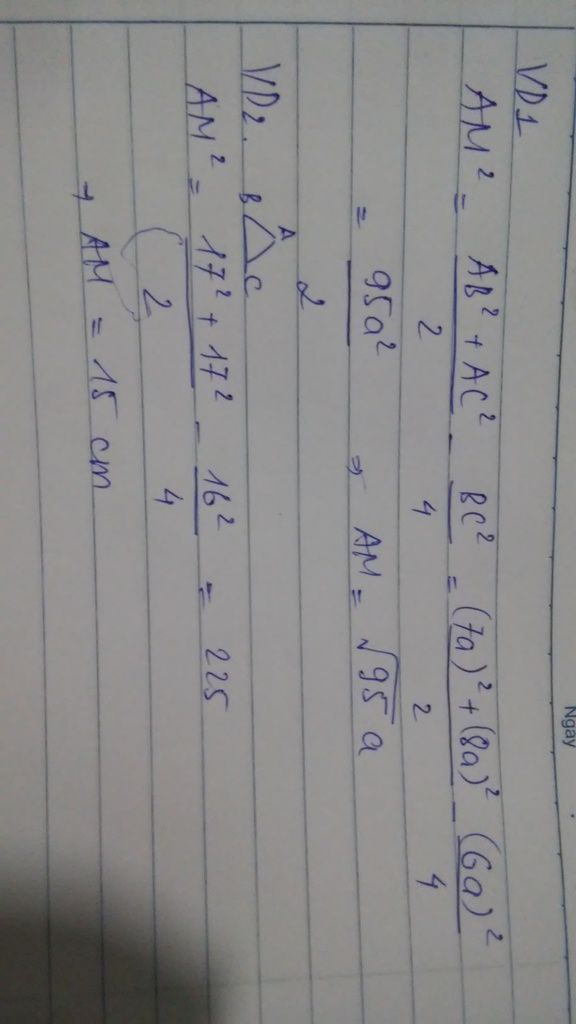 Ngay
VD1
AM² = AB² + AC² / 2 - BC² / 4 = (7a)² + (8a)² / 2 - (6a)² / 4
= 95a² / 2 ⇒ AM = √95 a
VD2. A B C
AM² = 17² + 17² / 2 - 16² / 4 = 225
→ AM = 15 cm